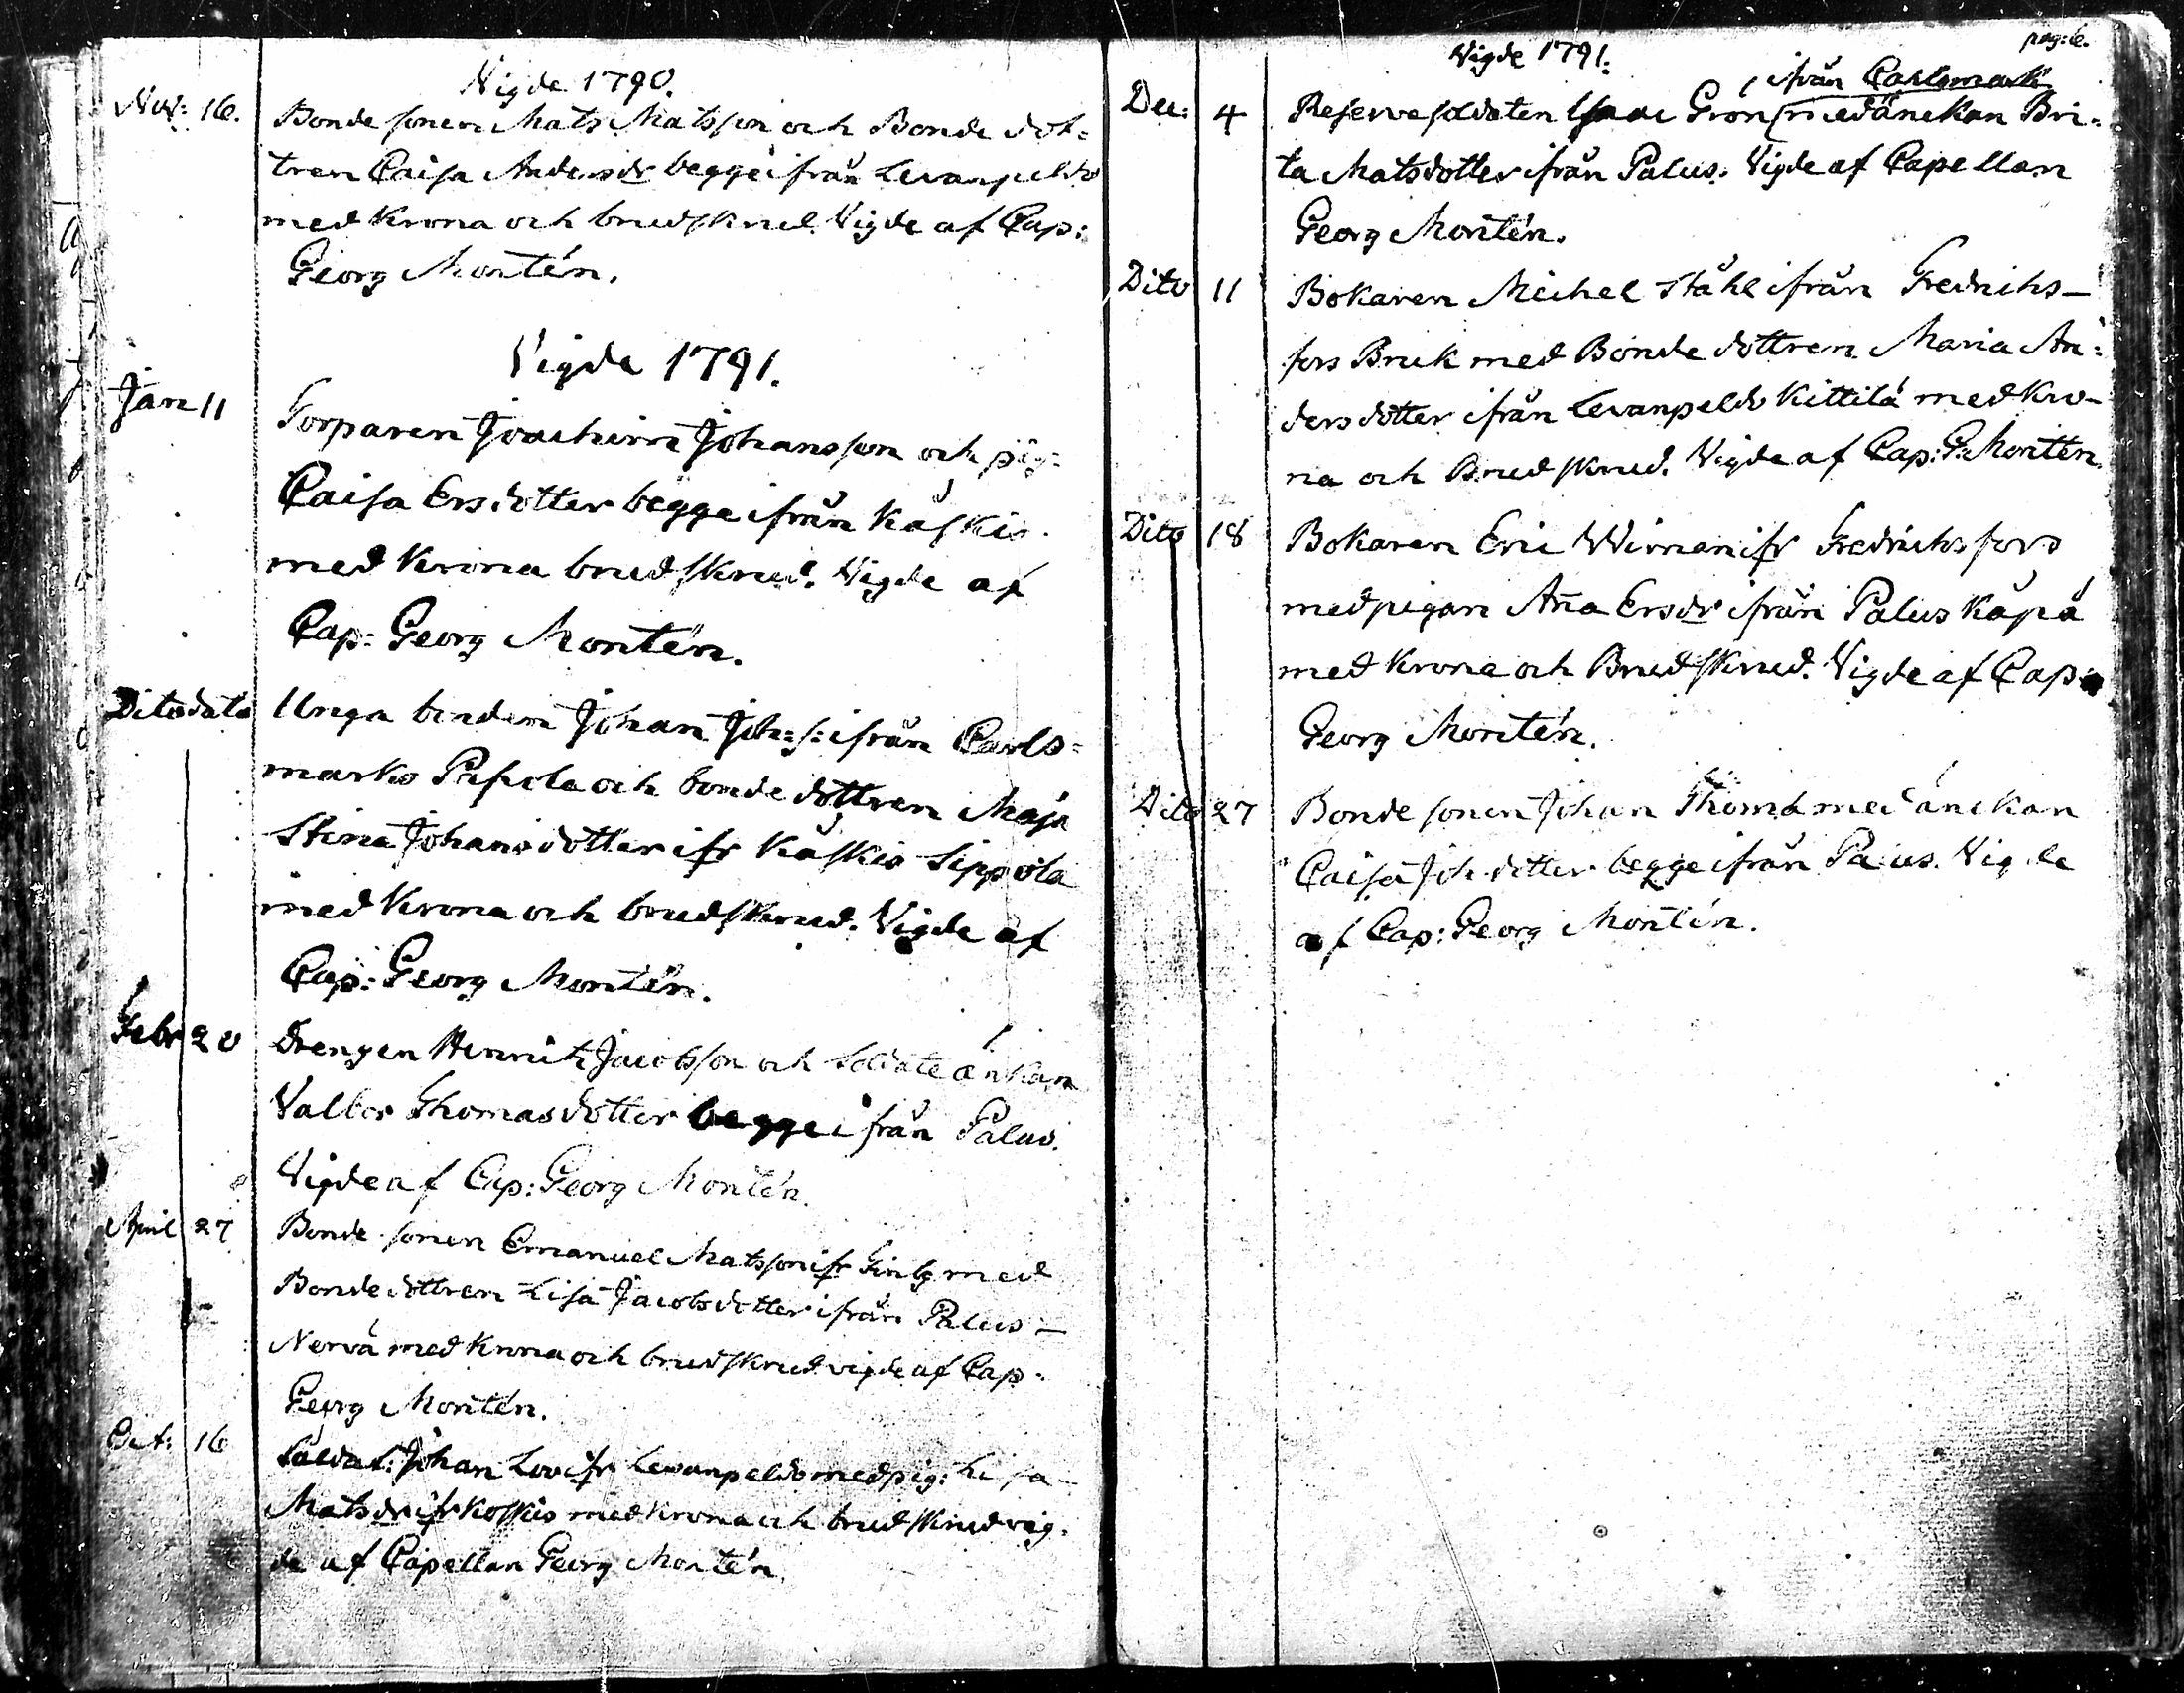 Vigde 1790.
Nov: 16. Bonde sonen Mats Matsson och Bonde dot=
tren Caisa Andersdr begge ifrån Levanpeldo
med Krona och brudskrud Vigde af Cap:
Georg Montén.
Vigde 1791.
Jan 11 Torparen Joachim Johansson och pig:
Caisa Ersdotter begge ifrån Kaskis
med Krona brudskrud. Vigde af
Cap: Georg Montén.
Dito dato Unga bonden Johan Joh:s: ifrån Carls=
marks Pesola och bonde dottren Maja
Stina Johansdotter ifr Kaskis Sippola
med Krona och brudskrud. Vigde af
Cap: Georg Montén.
Febr 20 Drengen Henrik Jacobsson och Soldate änkan
Valbor Thomasdotter begge ifrån Palus.
Vigde af Cap: Georg Montén.
April 27 Bonde sonen Emanuel Matsson ifr Finby med
Bonde dottren Lisa Jacobsdotter ifrån Palus –
Nervä med Krona och brudskrud vigde af Cap.
Georg Montén.
Oct: 16 Saldat: Johan Lov ifr Levanpeldo med pig: Lisa
Matsdr ifr Koskis med Krona och brudskrud vig-
de af Capellan Georg Montén.
pag: 6.
Vigde 1791.
ifrån Carlsmark
Dec: 4 Reserve soldaten Isaac Grön med änckan Bri=
ta Matsdotter ifrån Palus. Vigde af Capellan
Georg Montén.
Dito 11 Bokaren Michel Ståhl ifrån Fredrichs–
fors Bruk med Bonde dottren Maria An=
dersdotter ifrån Levanpeldo Kittilä med Kro–
na och Brudskrud. Vigde af Cap: G: Montén.
Dito 18 Bokaren Eric Wiman ifr Fredrichsfors
med pigan Aña Ersdr ifrån Palus Käpä
med Krona och Brudskrud. Vigde af Cap:
Georg Montén.
Dito 27 Bonde sonen Johan Thoma med änckan
Caisa Joh dotter begge ifrån Palus. Vigde
af Cap: Georg Montén.